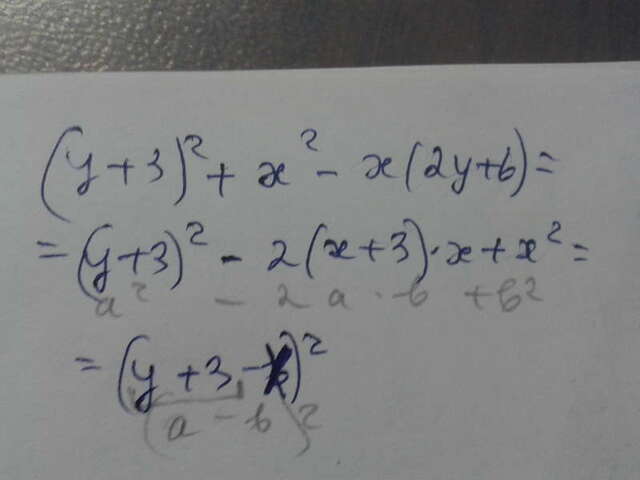 (y+3)² + x² - x(2y+6) =
= (y+3)² - 2(x+3)·x + x² =
a² - 2 a · b + b²
= (y+3-x)²
(a - b)²